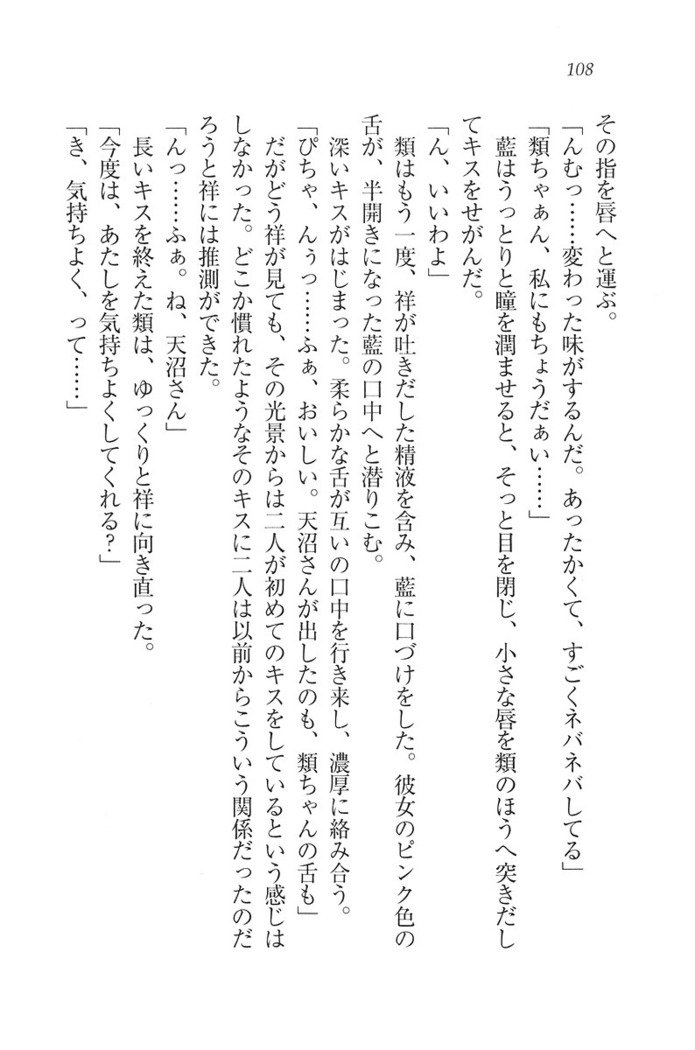 108
その指を唇へと運ぶ。
「んむっ……変わった味がするんだ。あったかくて、すごくネバネバしてる」
「類ちゃぁん、私にもちょうだぁい……」
藍はうっとりと瞳を潤ませると、そっと目を閉じ、小さな唇を類のほうへ突きだし
てキスをせがんだ。
「ん、いいわよ」
類はもう一度、祥が吐きだした精液を含み、藍に口づけをした。彼女のピンク色の
舌が、半開きになった藍の口中へと潜りこむ。
深いキスがはじまった。柔らかな舌が互いの口中を行き来し、濃厚に絡み合う。
「ぴちゃ、んぅっ……ふぁ、おいしい。天沼さんが出したのも、類ちゃんの舌も」
だがどう祥が見ても、その光景からは二人が初めてのキスをしているという感じは
しなかった。どこか慣れたようなそのキスに二人は以前からこういう関係だったのだ
ろうと祥には推測ができた。
「んっ……ふぁ。ね、天沼さん」
長いキスを終えた類は、ゆっくりと祥に向き直った。
「今度は、あたしを気持ちよくしてくれる？」
「き、気持ちよく、って……」